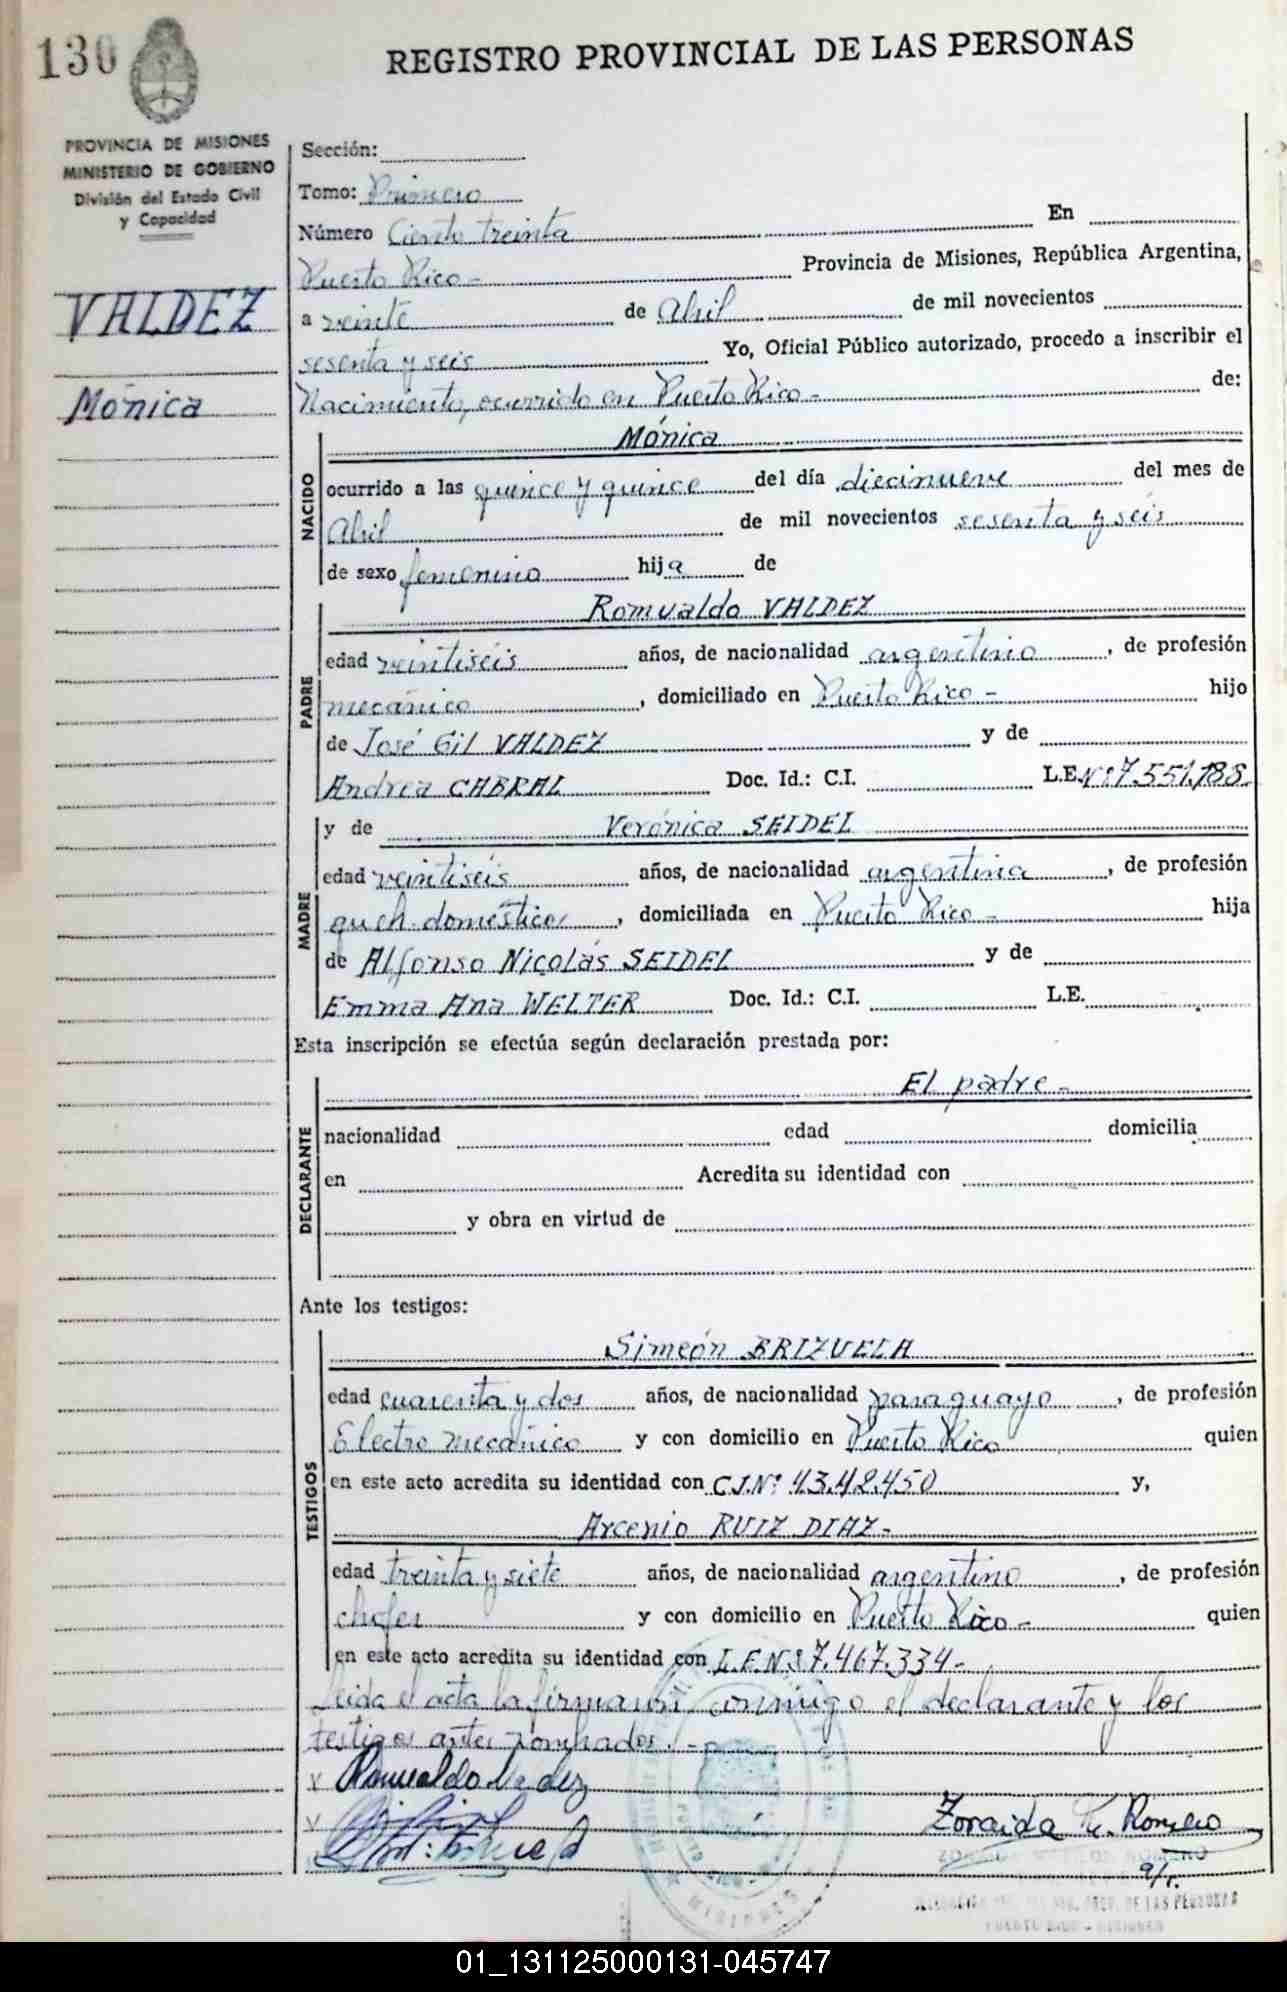 130
REGISTRO PROVINCIAL DE LAS PERSONAS
PROVINCIA DE MISIONES
MINISTERIO DE GOBIERNO
División del Estado Civil
y Capacidad
VALDEZ
Mónica
Sección:
Tomo: Primero
Número Ciento treinta En
Puerto Rico - Provincia de Misiones, República Argentina,
a veinte de Abril de mil novecientos
sesenta y seis Yo, Oficial Público autorizado, procedo a inscribir el
Nacimiento, ocurrido en Puerto Rico - de:
NACIDO
Mónica
ocurrido a las quince y quince del día diecinueve del mes de
Abril de mil novecientos sesenta y seis
de sexo femenino hija de
PADRE
Romualdo VALDEZ
edad veintiseis años, de nacionalidad argentino, de profesión
mecánico, domiciliado en Puerto Rico - hijo
de José Gil VALDEZ y de
Andrea CABRAL Doc. Id.: C.I. L.E. Nº 7.551.788.
MADRE
y de Verónica SEIDEL
edad veintiseis años, de nacionalidad argentina, de profesión
queh. domésticos, domiciliada en Puerto Rico - hija
de Alfonso Nicolás SEIDEL y de
Emma Ana WELTER Doc. Id.: C.I. L.E.
Esta inscripción se efectúa según declaración prestada por:
DECLARANTE
El padre -
nacionalidad edad domicilia
en Acredita su identidad con
y obra en virtud de
Ante los testigos:
TESTIGOS
Simeón BRIZUELA
edad cuarenta y dos años, de nacionalidad paraguayo, de profesión
Electro mecánico y con domicilio en Puerto Rico quien
en este acto acredita su identidad con C.I.Nº 43.42.450 y,
Arcenio RUIZ DIAZ -
edad treinta y siete años, de nacionalidad argentino, de profesión
chofer y con domicilio en Puerto Rico - quien
en este acto acredita su identidad con L.E.Nº 7.467.334 -
Leida el acta la firmaron conmigo el declarante y los
testigos antes nombrados. -
Romualdo Valdez
Zoraida Romero
ROMERO
DE LAS PERSONAS
PUERTO RICO - MISIONES
MISIONES
01_131125000131-045747